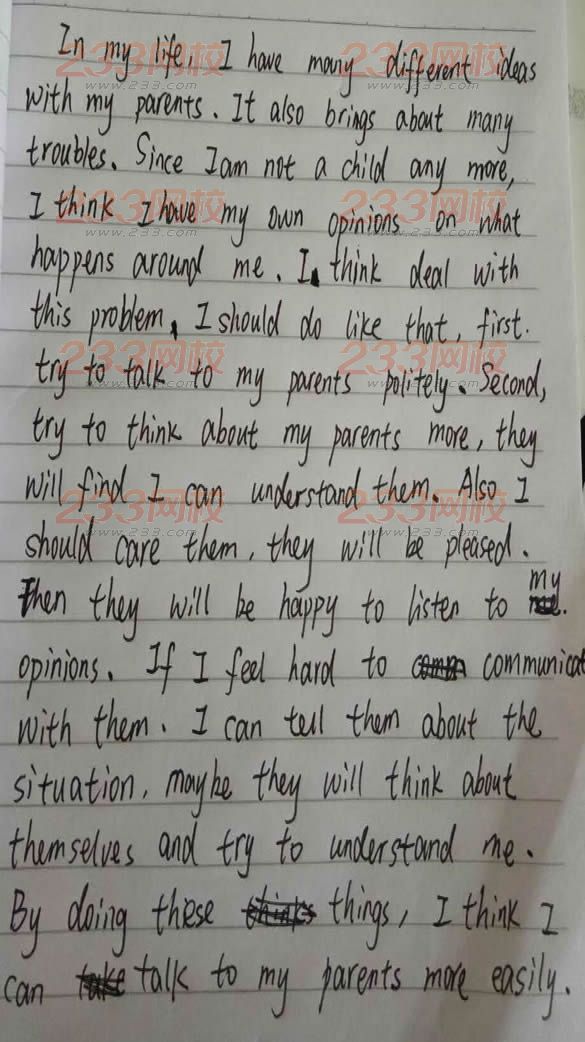 In my life, I have many different ideas
with my parents. It also brings about many
troubles. Since I am not a child any more,
I think I have my own opinions on what
happens around me. I think deal with
this problem, I should do like that, first.
try to talk to my parents politely. Second,
try to think about my parents more, they
will find I can understand them. Also I
should care them, they will be pleased.
Then they will be happy to listen to my
opinions. If I feel hard to communicat
with them. I can tell them about the
situation, maybe they will think about
themselves and try to understand me.
By doing these things, I think I
can talk to my parents more easily.
233网校
www.233.com
233网校
www.233.com
233网校
www.233.com
233网校
www.233.com
233网校
www.233.com
233网校
www.233.com
233网校
www.233.com
233网校
www.233.com